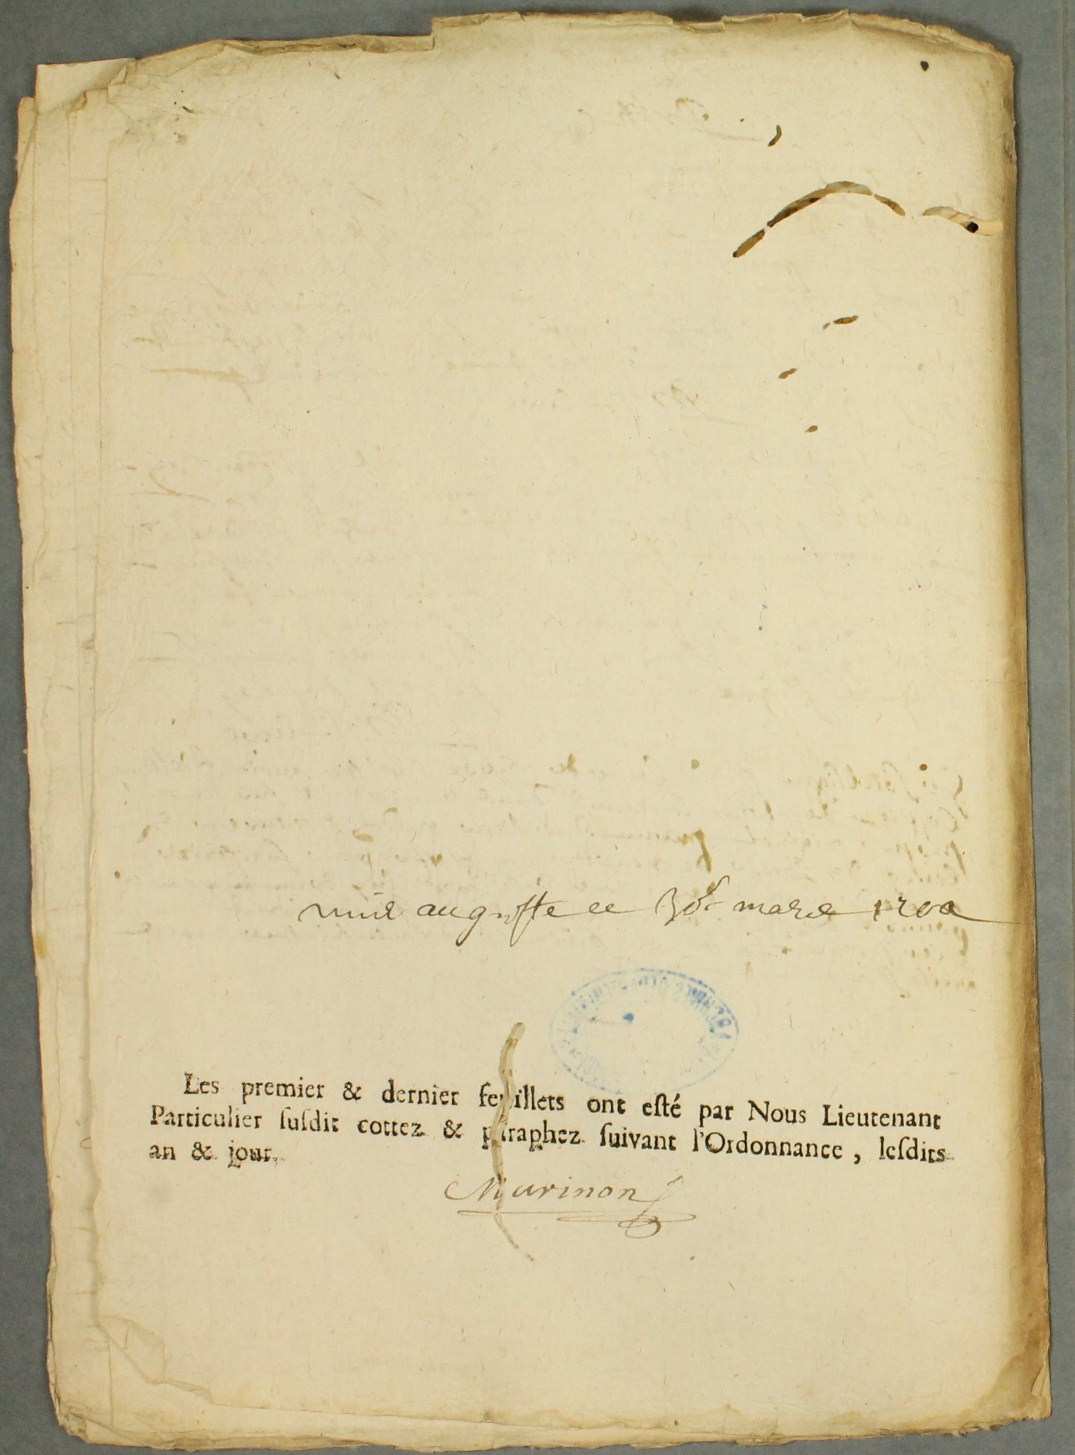 au greffe ce 30e mars 1700
Les premier & dernier feuillets ont esté par Nous Lieutenant
Particulier ſuſdit cottez & paraphez ſuivant l'Ordonnance, leſdits
an & jour.
Marinon